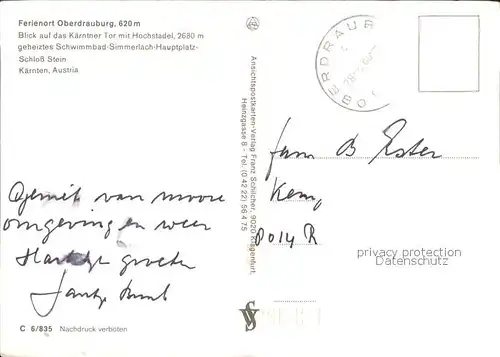 Ferienort Oberdrauburg, 620 m
Blick auf das Kärntner Tor mit Hochstadel, 2680 m
geheiztes Schwimmbad-Simmerlach-Hauptplatz-
Schloß Stein
Kärnten, Austria
Geniet van mooie
omgeving en weer
Hartelijke groeten
C 6/835 Nachdruck verboten
Ansichtspostkarten-Verlag Franz Schilcher, 9020 Klagenfurt,
Heinzgasse 8 - Tel. (0 42 22) 56 4 75
OBERDRAUB
Fam B
8014 R
privacy protection
Datenschutz